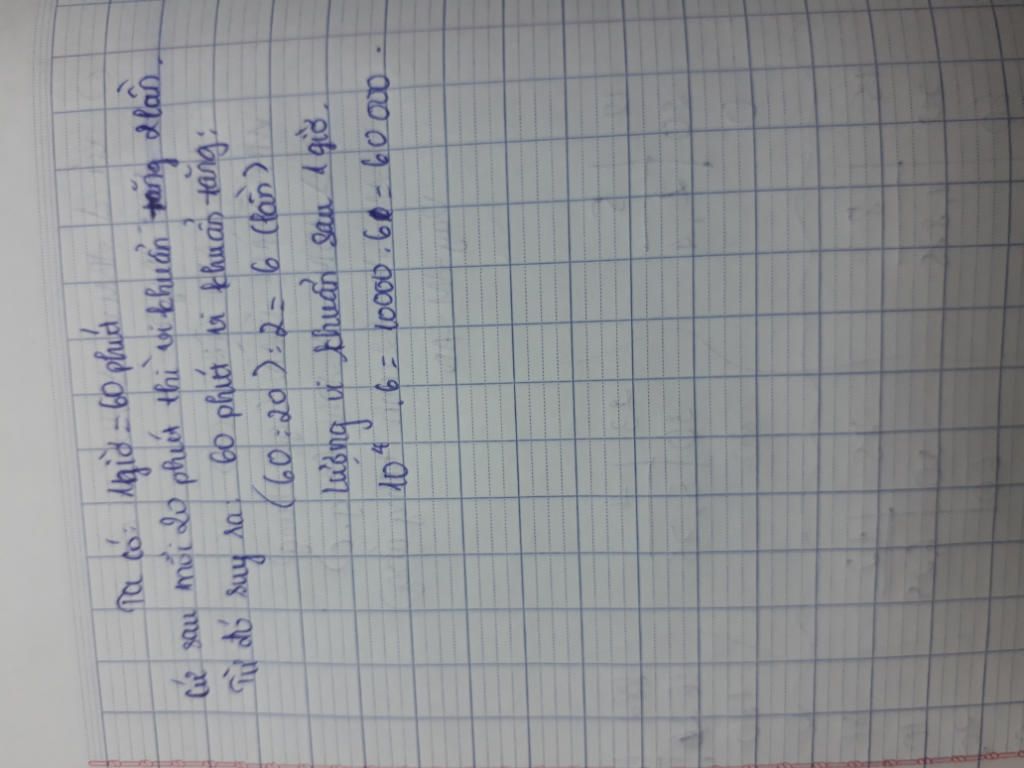 Ta có: 1giờ = 60 phút
Cứ sau mỗi 20 phút thì vi khuẩn tăng 2 lần.
Từ đó suy ra: 60 phút vi khuẩn tăng:
(60:20).2 = 6 (lần)
lượng vi khuẩn sau 1 giờ.
10⁴.6 = 10000.6 = 60 000.